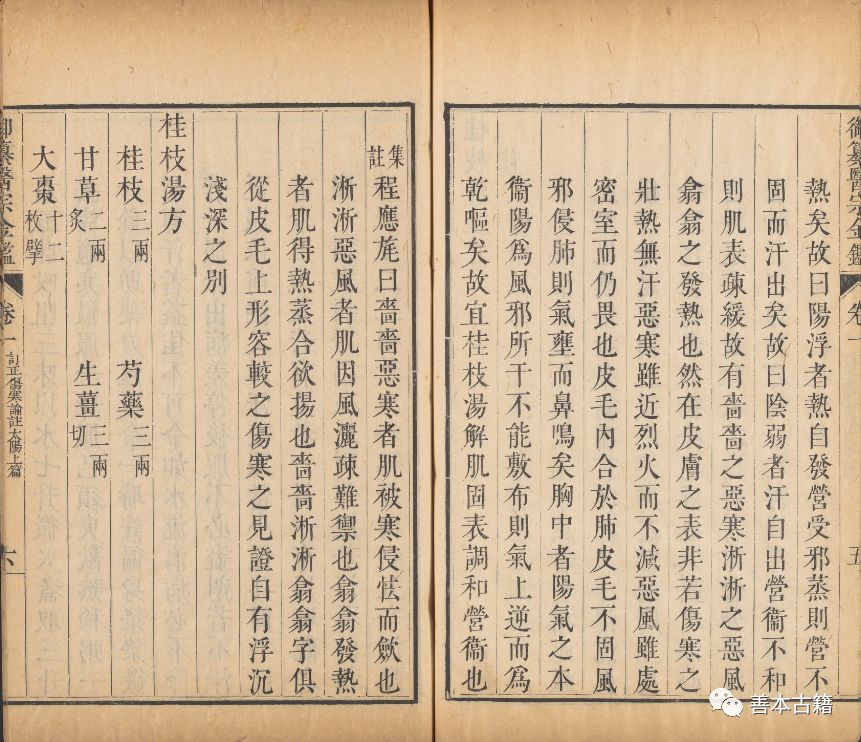 熱矣故曰陽浮者熱自發營受邪蒸則營不
固而汗出矣故曰陰弱者汗自出營衞不和
則肌表疎緩故有嗇嗇之惡寒淅淅之惡風
翕翕之發熱也然在皮膚之表非若傷寒之
壯熱無汗惡寒雖近烈火而不減惡風雖處
密室而仍畏也皮毛內合於肺皮毛不固風
邪侵肺則氣壅而鼻鳴矣胸中者陽氣之本
衞陽爲風邪所干不能敷布則氣上逆而爲
乾嘔矣故宜桂枝湯解肌固表調和營衞也
集註程應旄曰嗇嗇惡寒者肌被寒侵怯而歛也
淅淅惡風者肌因風灑疎難禦也翕翕發熱
者肌得熱蒸合欲揚也嗇嗇淅淅翕翕字俱
從皮毛上形容較之傷寒之見證自有浮沉
淺深之別
桂枝湯方
桂枝三兩 芍藥三兩
甘草二兩炙 生薑三兩切
大棗十二枚擘
御纂醫宗金鑑 卷一 訂正傷寒論註太陽上篇 六
御纂醫宗金鑑 卷一 五
善本古籍